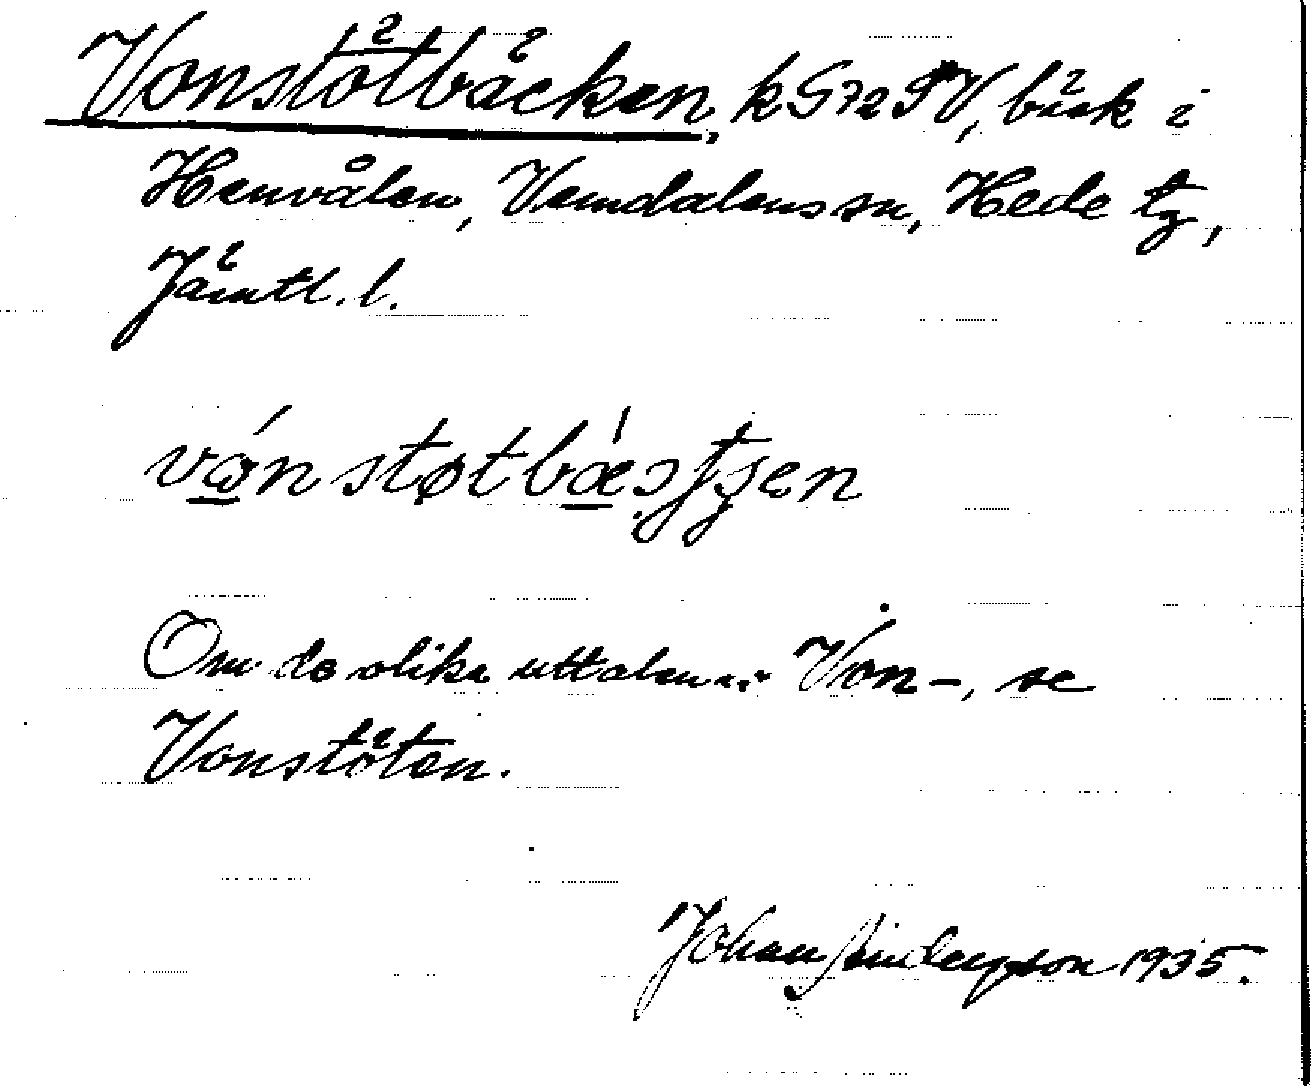 Vonstötbäcken, k G72SV, bäck i
Henvålen, Vemdalens sn, Hede tg,
Jämtl. l.
støtbæ
Om de olika uttalen Von-, se
Vonstöten.
Johan 1935.